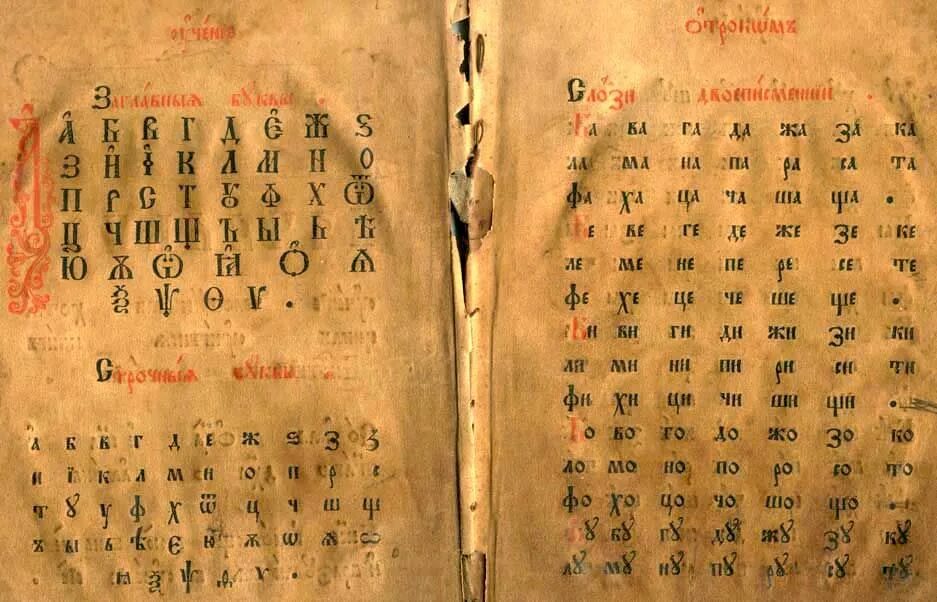 Оу҆чє́нїє
Заглавныѧ бꙋквы
А Б В Г Д Є Ж Ѕ
З И І К Л М Н О
П Р С Т Ꙋ Ф Х Ѿ
Ц Ч Ш Щ Ъ Ы Ь Ѣ
Ю Ѫ Ѡ Ꙗ Ѻ Ѧ
Ѯ Ѱ Ѳ Ѵ .
Строчныѧ бꙋквы
а б в г д є ж ѕ з
и ї к л м н ю п р с
т ꙋ у ф х ѿ ц ч ш щ
ъ ы ь ѣ є ю ѫ ѡ ѧ
ѯ ѱ ѵ .
Отрокѡмъ
Слози двописменнїи .
Ба ва га да жа за ка
ла ма на па ра са та
фа ха ца ча ша ща .
Бе ве ге де же зе ке
ле ме не пе ре се те
фе хе це че ше ще .
Би ви ги ди жи зи ки
ли ми ни пи ри си ти
фи хи ци чи ши щи .
Бо во го до жо зо ко
ло мо но по ро со то
фо хо цо чо шо що .
бꙋ гꙋ дꙋ жꙋ зꙋ кꙋ
лꙋ мꙋ нꙋ пꙋ рꙋ сꙋ тꙋ